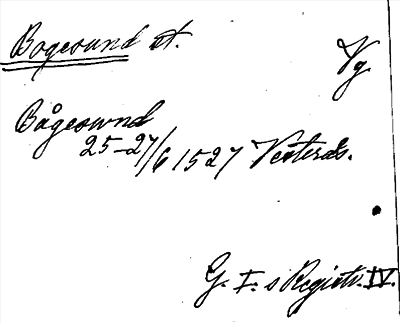 Bogesund st.
Vg
Bågesund
25-27/6 1527 Vesterås.
G. I.s Registr. IV.